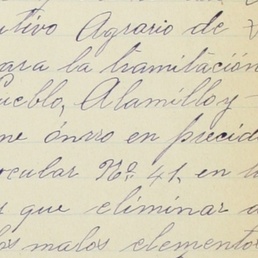 utivo Agrario de
para la tramitación
Pueblo, Alamillo y
me ónrro en precid
cular Nº 41, en l
que eliminar a
los malos elemento